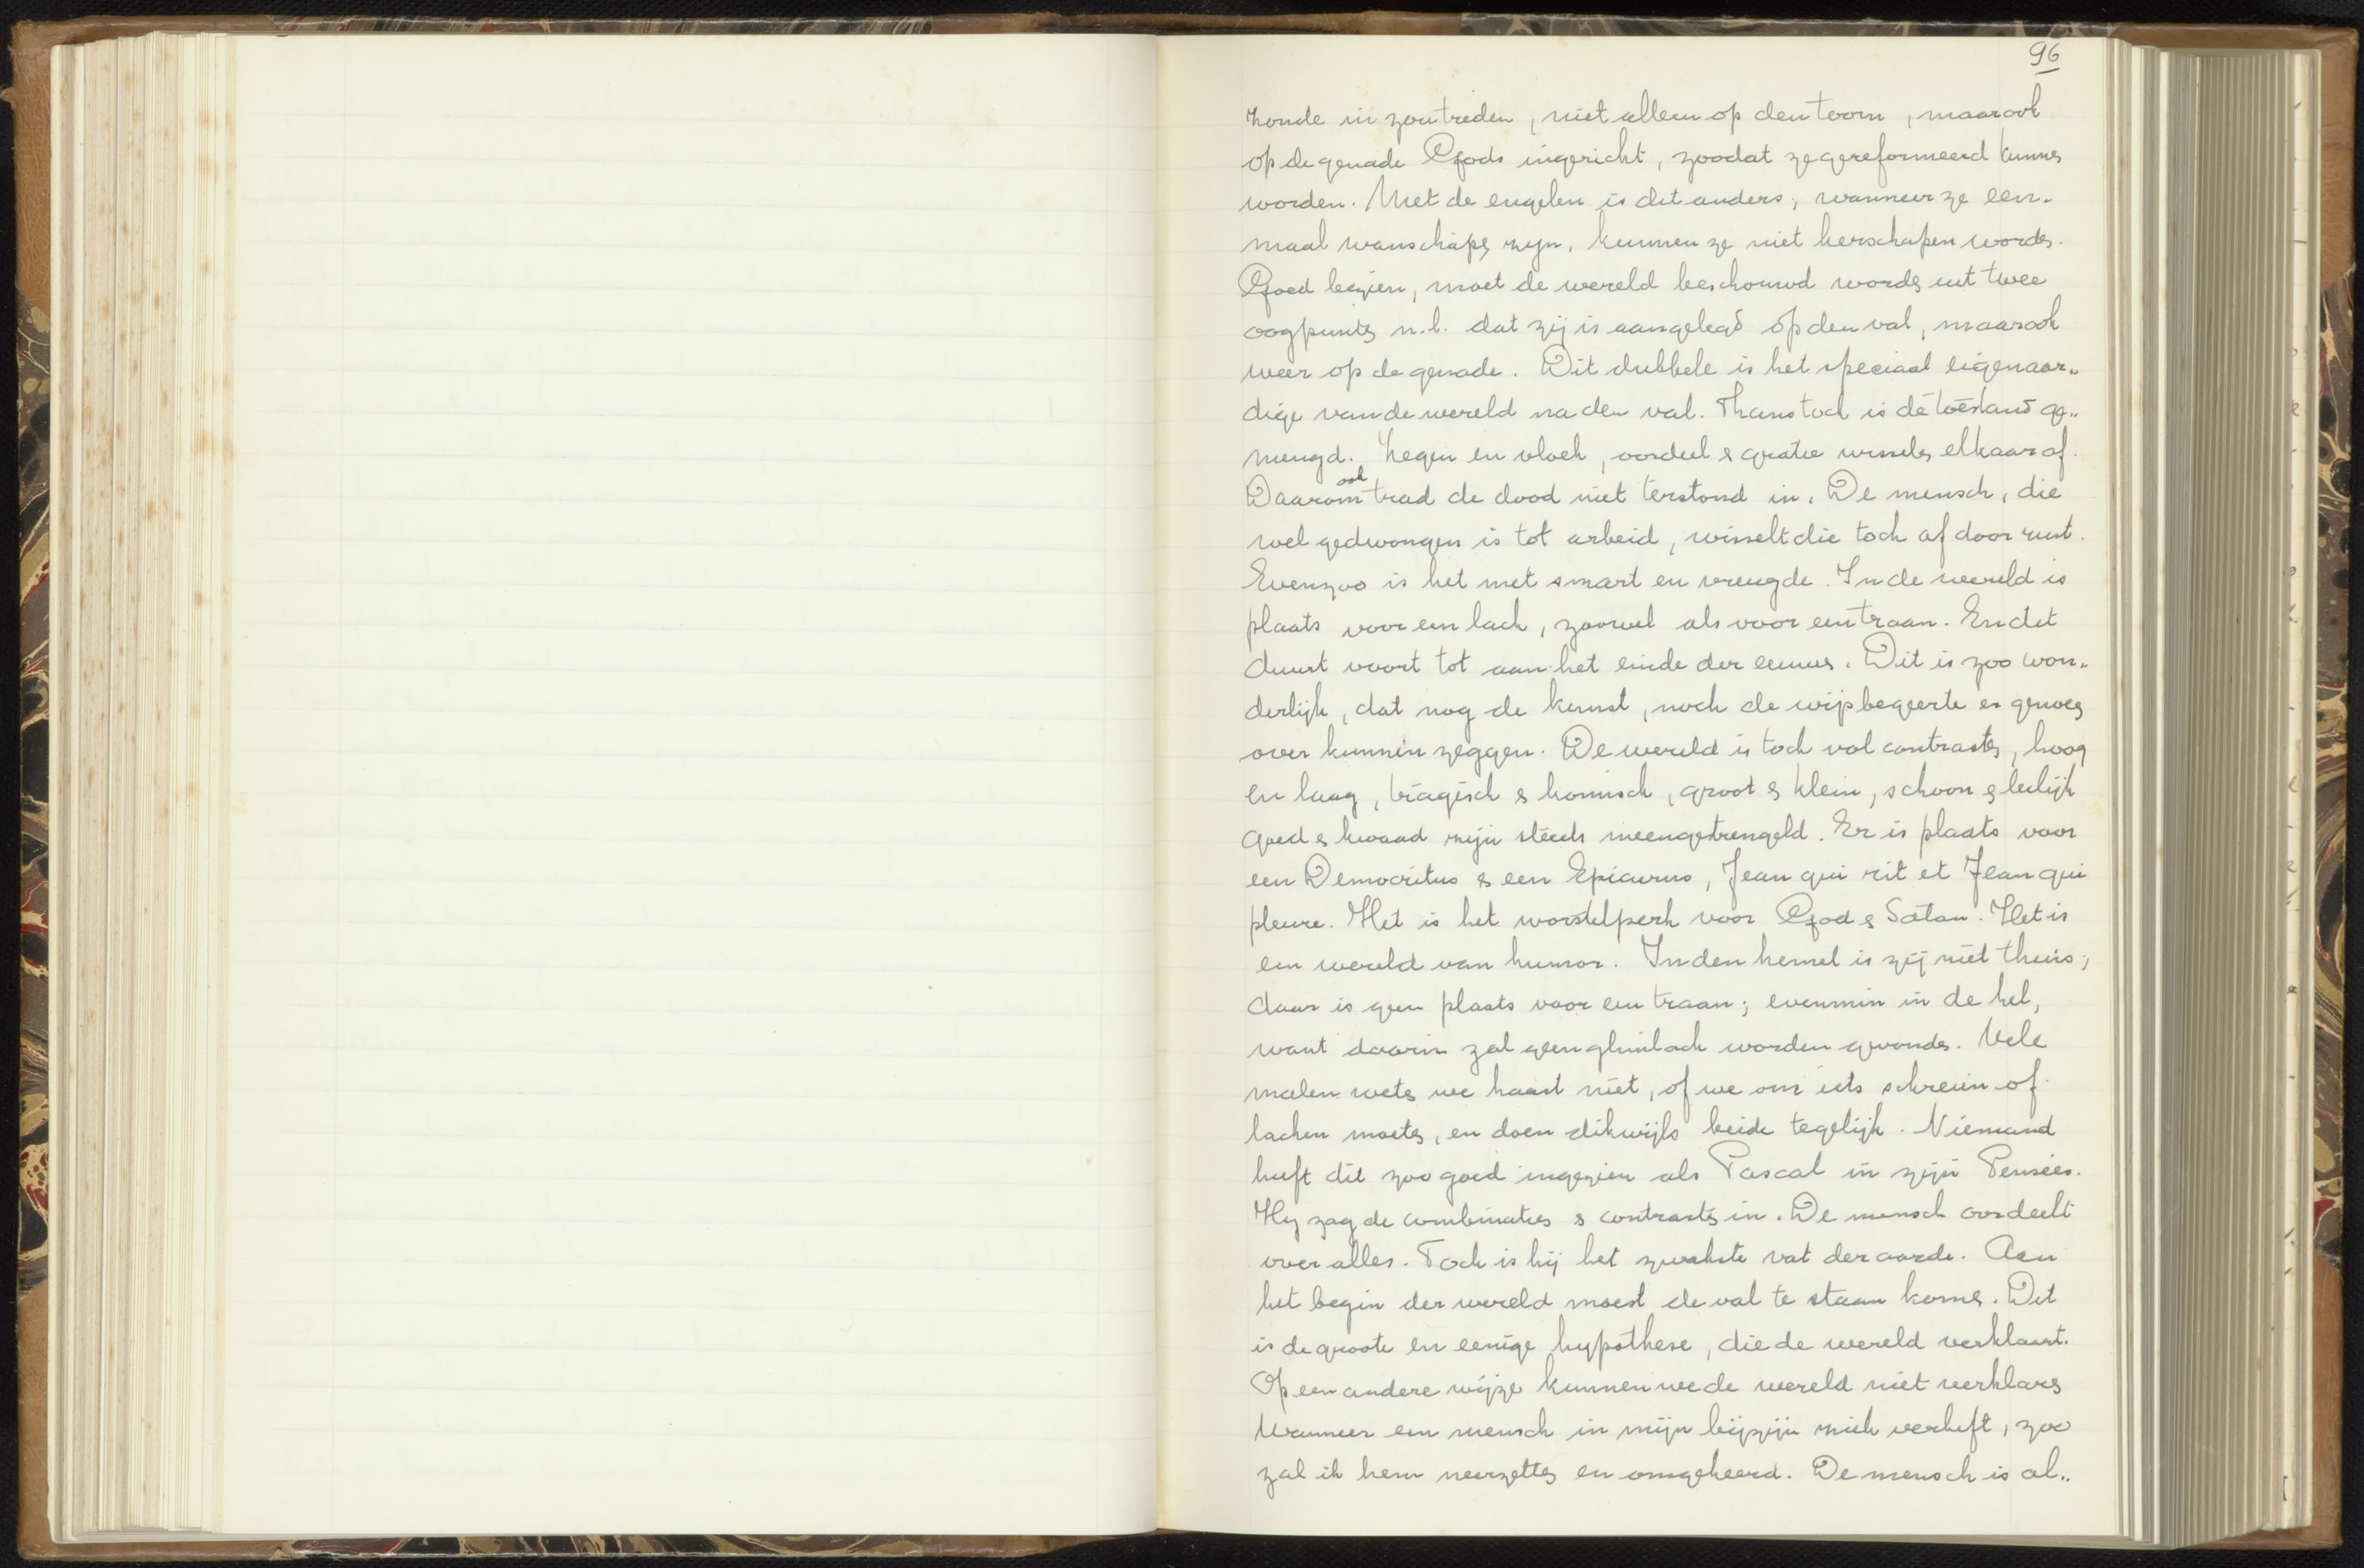 96
zonde in zou treden, niet alleen op den toorn, maar ook
op de genade Gods ingericht, zoodat ze gereformeerd kunnen
worden. Met de engelen is dit anders; wanneer ze een-
maal wanschapen zyn, kunnen ze niet herschapen worden.
Goed bezien, moet de wereld beschouwd worden uit twee
oogpunten n.l. dat zij is aangelegd op den val, maar ook
weer op de genade. Dit dubbele is het speciaal eigenaar-
dige van de wereld na den val. Thans toch is de toestand ge-
mengd. Zegen en vloek, oordeel & gratie wisselen elkaar af.
Daarom ook trad de dood niet terstond in. De mensch, die
wel gedwongen is tot arbeid, wisselt die toch af door rust.
Evenzoo is het met smart en vreugde. In de wereld is
plaats voor een lach, zoowel als voor een traan. En dit
duurt voort tot aan het einde der eeuwen. Dit is zoo won-
derlijk, dat nog de kunst, noch de wijsbegeerte er genoeg
over kunnen zeggen. De wereld is toch vol contrasten, hoog
en laag, tragisch & komisch, groot & klein, schoon & leelijk
goed & kwaad zijn steeds ineengetrengeld. Er is plaats voor
een Democritus & een Epicurus, Jean qui rit et Jean qui
pleure. Het is het worstelperk voor God & Satan. Het is
een wereld van humor. In den hemel is zij niet thuis;
daar is geen plaats voor een traan; evenmin in de hel,
want daarin zal geen glimlach worden gevonden. Vele
malen weten we haast niet, of we om iets schreien of
lachen moeten, en doen dikwijls beide tegelijk. Niemand
heeft dit zoo goed ingezien als Pascal in zijn Pensées.
Hy zag de combinaties & contrasten in. De mensch oordeelt
over alles. Toch is hij het zwakste vat der aarde. Aan
het begin der wereld moest de val te staan komen. Dit
is de groote en eenige hypothese, die de wereld verklaart.
Op een andere wijze kunnen we de wereld niet verklaren
Wanneer een mensch in mijn bijzijn zich verheft, zoo
zal ik hem neerzetten en omgekeerd. De mensch is al-